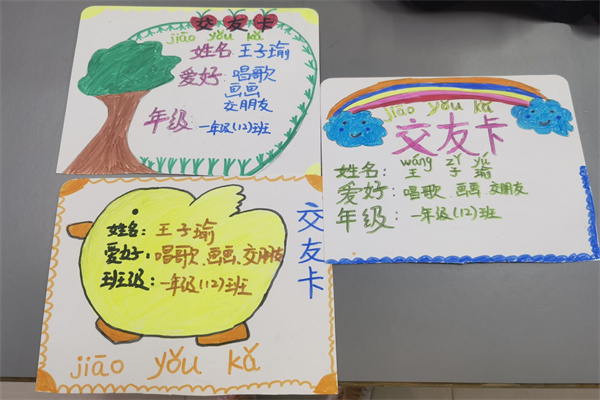 交友卡
jiāo yǒu kǎ
姓名:王子瑜
爱好:唱歌
画画
交朋友
年级:一年级(12)班
jiāo yǒu kǎ
交友卡
wáng zǐ yú
姓名:王子瑜
爱好:唱歌、画画、交朋友
年级:一年级(12)班
姓名:王子瑜
爱好:唱歌、画画、交朋友
班级:一年级(12)班
交友卡
jiāo yǒu kǎ